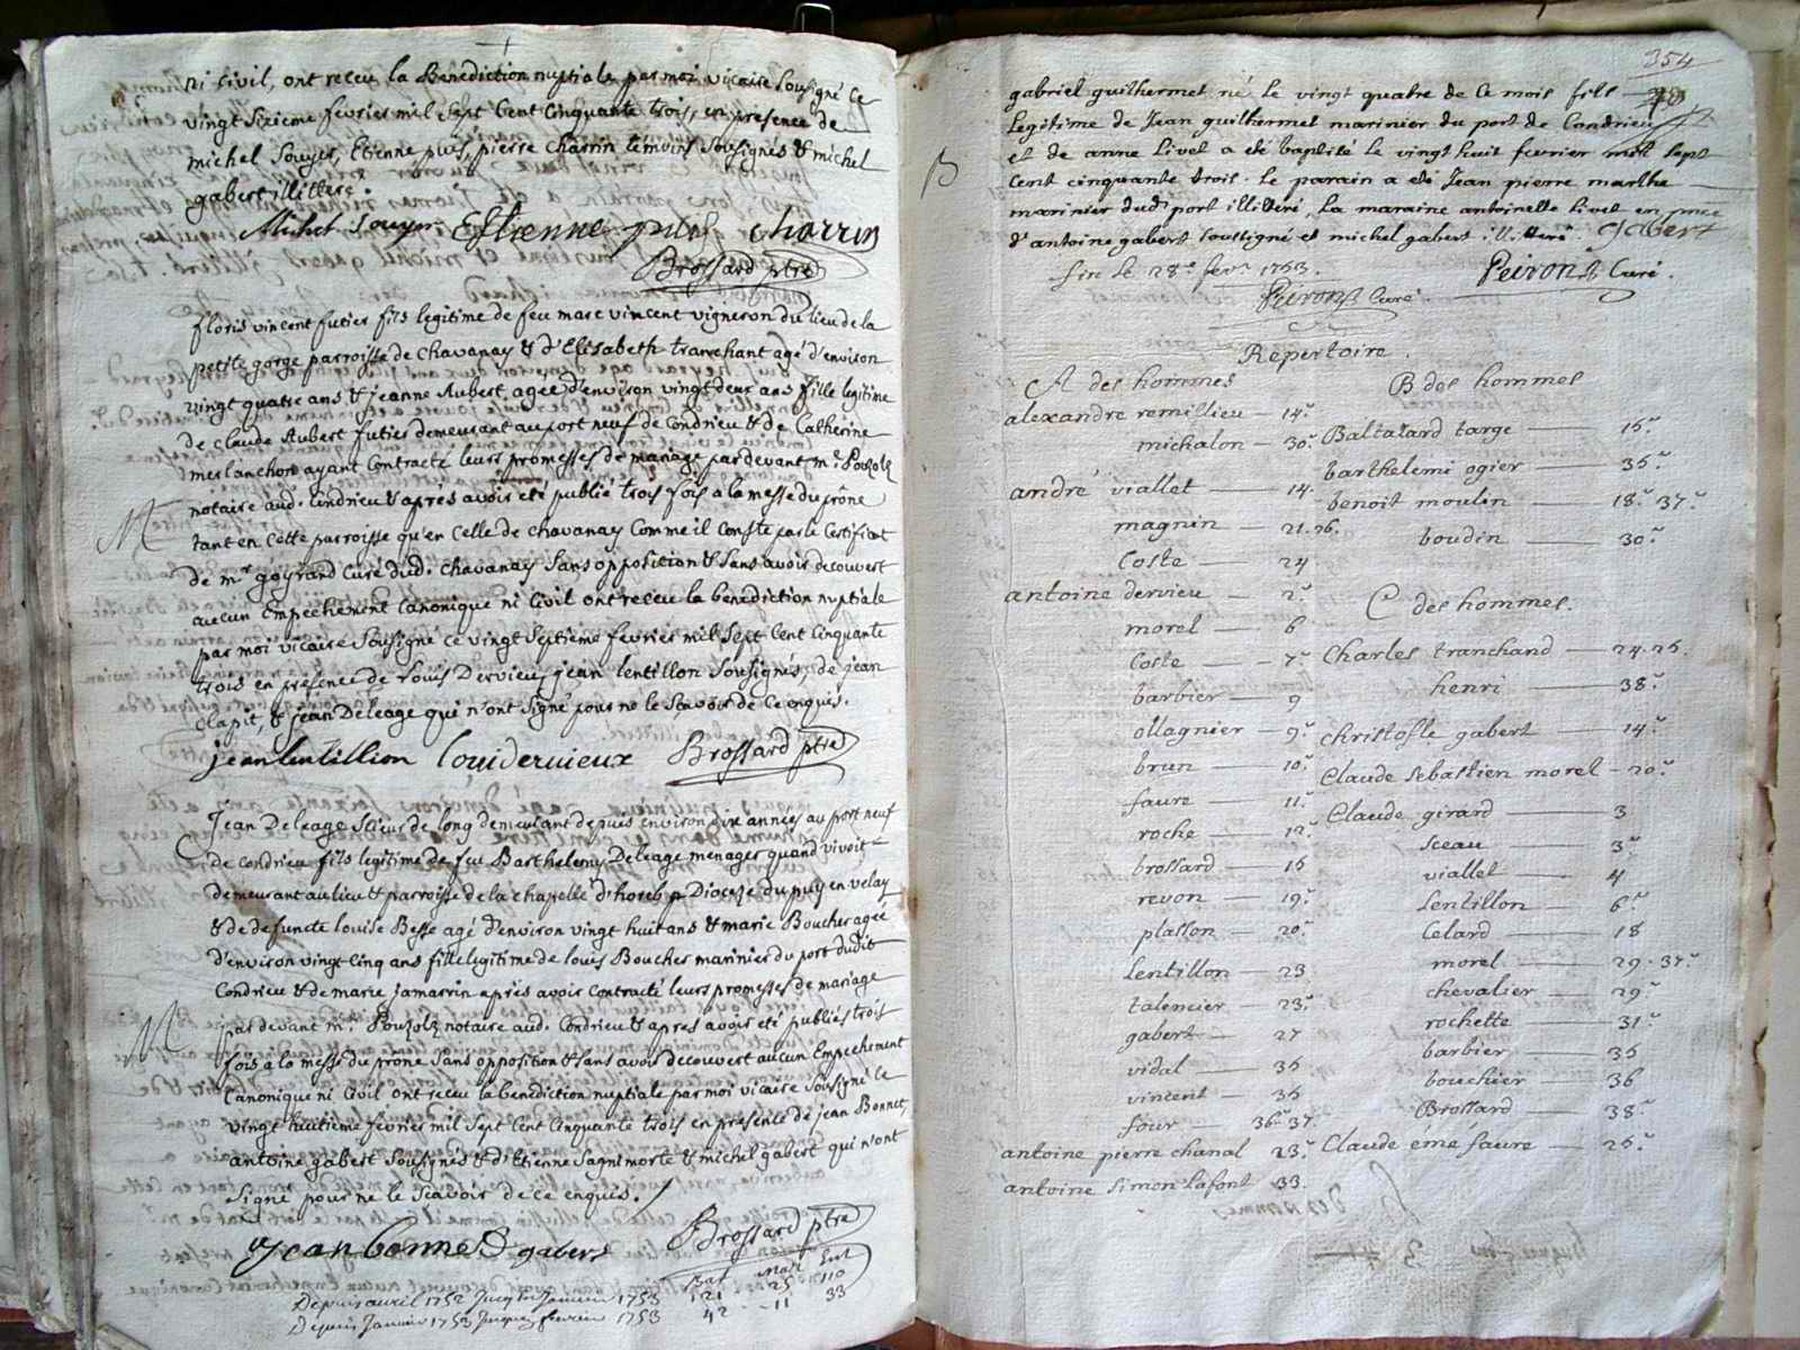 ni Civil, ont receu la Benediction nuptiale par moi vicaire sousigné ce
vingt sixieme fevrier mil sept Cent Cinquante trois, en presence de
michel Souyer, Etienne puis, pierre Charrin temoins Sousignés & michel
gabert illitere.
Michel Souyer Estienne puis Charrin
Brossard ptre
floris vincent futier fils legitime de feu marc vincent vigneron du lieu de la
petite gorge parroisse de Chavanay & d'Elisabeth tranchant agé d'environ
vingt quatre ans & jeanne Aubert agée d'environ vingt deux ans fille legitime
de Claude Aubert futier demeurant au port neuf de Condrieu & de Catherine
merlanchon ayant Contracté leurs promesses de mariage par devant mr. Pouzolz
notaire aud. Condrieu & après avoir eté publié trois fois a la messe du prône
tant en Cette parroisse qu'en Celle de Chavanay Comme il Conste par le Certificat
M
de mr goyrand Curé dud. Chavanay Sans opposition & Sans avoir decouvert
aucun Empechement Canonique ni Civil ont receu la benediction nuptiale
par moi vicaire Sousigné ce vingt Septieme fevrier mil Sept Cent Cinquante
trois en presence de Louis Dervieu, jean lentillon Sousignés, de jean
Clapit, & jean Deleage qui n'ont Signé pour ne le Sçavoir de Ce enquis.
jean lentillion louidervieux Brossard ptre
Jean Deleage Scieur de long demeurant depuis environ dix années au port neuf
de Condrieu fils legitime de feu Barthelemy Deleage menager quand vivoit
demeurant au lieu & parroisse de la chapelle d' Diocese du puy en velay
& de defuncte louise Besse agé d'environ vingt huit ans & marie Boucher agée
d'environ vingt Cinq ans fille legitime de louis Boucher marinier du port dudit
Condrieu & de marie jamarrin après avoir Contracté leurs promesses de mariage
M
par devant mr. Pouzolz notaire aud. Condrieu & après avoir eté publiés trois
fois a la messe du prône Sans opposition & Sans avoir decouvert aucun Empechement
Canonique ni Civil ont receu la benediction nuptiale par moi vicaire Sousigné le
vingt huitieme fevrier mil Sept Cent Cinquante trois en presence de jean Bonnet,
antoine gabert Sousignés & d'Etienne Sagnimorte & michel gabert qui n'ont
Signé pour ne le Scavoir de ce enquis.
jean bonnet gabert Brossard ptre
Bat Mari Ent
Depuis avril 1752 Jusqu'en Janvier 1753 121 25 110
Depuis Janvier 1753 Jusques fevrier 1753 42 - 11 33
354
gabriel guilhermet né le vingt quatre de Ce mois fils
legitime de Jean guilhermet marinier du port de Condrieu
et de anne livet a eté baptisé le vingt huit fevrier mil sept
B
cent cinquante trois. le parain a eté Jean pierre marthe
marinier dud port illitéré, la maraine antoinette livet en pnce
d'antoine gabert soussigné et michel gabert illitéré. Gabert
fin le 28e fevr 1753. Peiron Curé.
Peiron Curé.
Repertoire.
A des hommes
alexandre remillieu — 14.v
michalon — 30.v
andré viallet — 14.
magnin — 21.26.
Coste — 24
antoine dervieu — 2.v
morel — 6
Coste — 7.v
barbier — 9
ollagnier — 9.v
brun — 10.v
faure — 11.v
roche — 12.v
brossard — 15
revon — 19.v
plasson — 20.v
Lentillon — 23
talencier — 23.v
gabert — 27
vidal — 35
vincent — 35
four — 36v 37.
antoine pierre chanal 23.v
antoine Simon Lafont 33.
B des hommes
Baltazard targe — 15.v
barthelemi ogier — 35.v
benoit moulin — 18.v 37.v
boudin — 30.v
C des hommes.
Charles tranchand — 24.25.
henri — 38.v
Christofle gabert — 14.v
Claude Sebastien morel — 20.v
Claude girard — 3
Sceau — 3v
viallet — 4
Lentillon — 6.v
Celard — 18
morel — 29. 37.v
chevalier — 29.v
rochette — 31.v
barbier — 35
bouchier — 36
Brossard — 38.v
Claude émé faure — 25.v